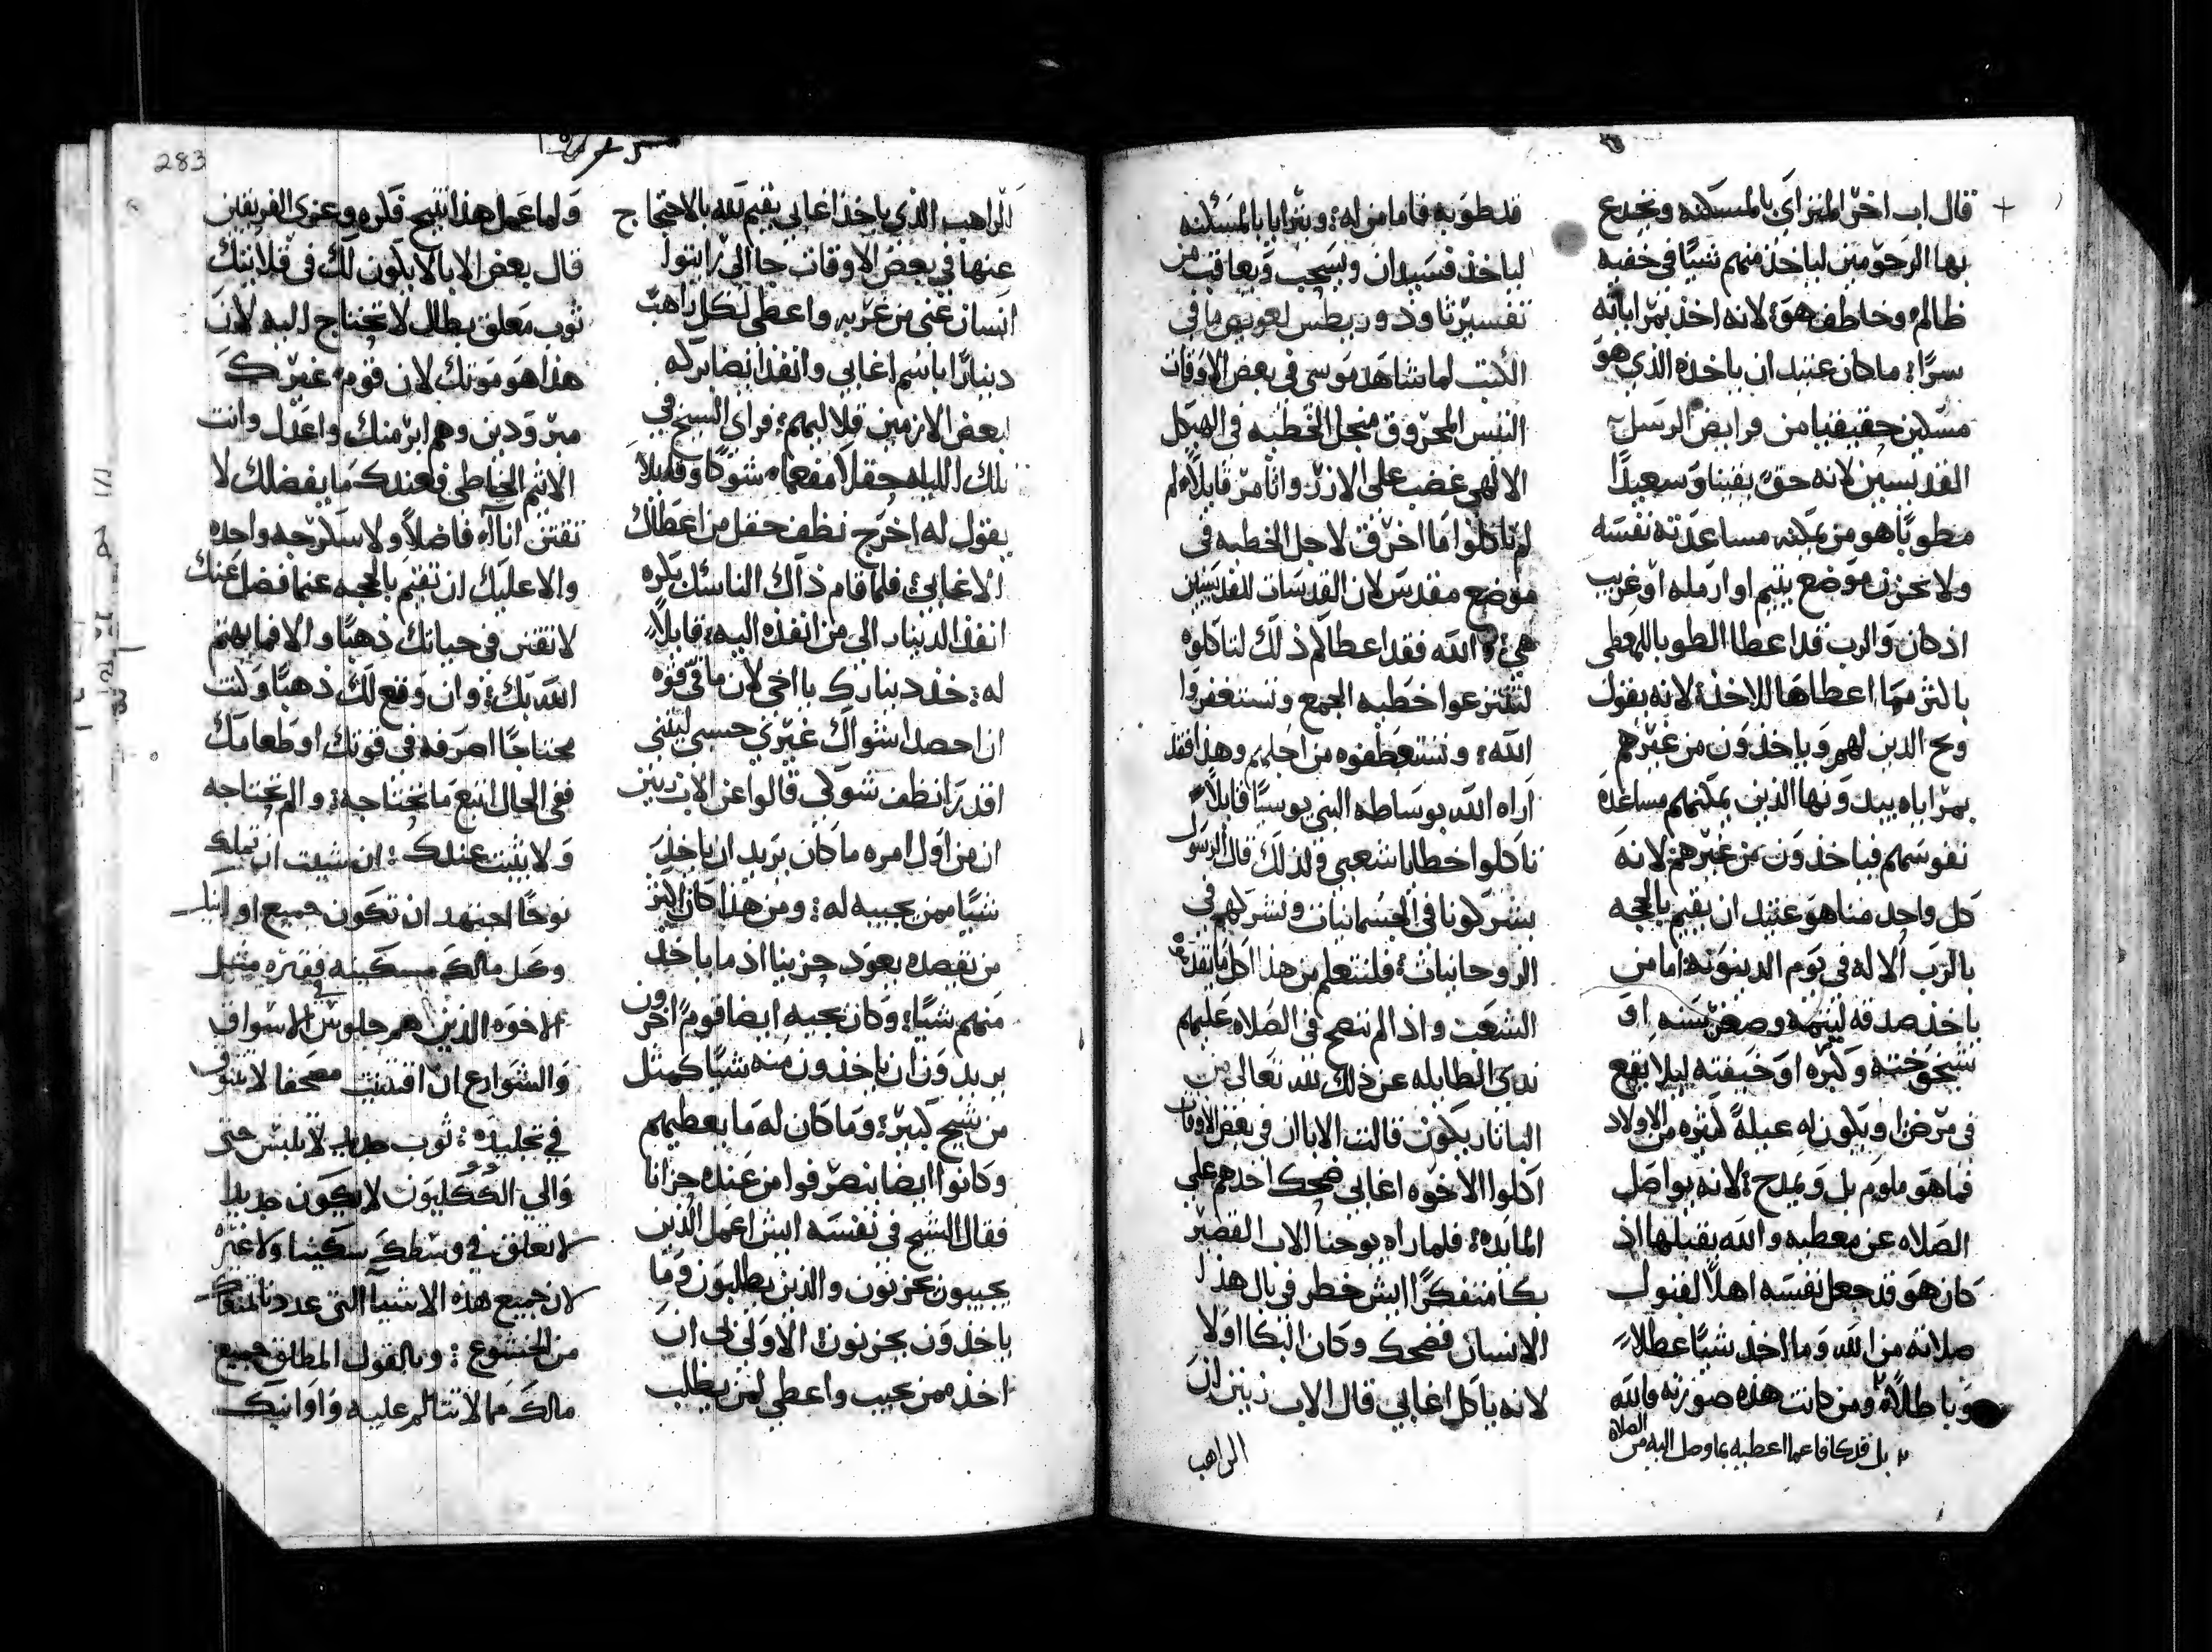 قال اب اخر المتراي بالمسكنه ويخدع
بها الرحومين لياخذ منهم شيًا في خفيه
ظالم وخاطف هو لانه اخذ بمراياته
سرًا: ما كان عتيد ان ياخذه الذي هو
مسكين حقيقيا من فرايض الرسل
القديسين لانه حقًا يقينا وسعيدًا
مطوبًا هو من يمكنه مساعدته نفسه
ولا يحزن موضع يتيم او ارمله او غريب
اذ كان والرب قد اعطا الطوبا للمعطي
بالثر مما اعطاها للاخذ لانه يقول
ويح الدين لهم وياخذون من غيرهم
بمراياه بيد ونها الذين يمكنهم مساعدة
نفوسهم فياخذون من غيرهم لانه
كل واحد منا هو عتيد ان يقيم بالحجه
بالرب الاله في يوم الدينونه اما من
ياخذ صدقه ليتمه وصغر سنه او
شيخوخته وكبره او خيفته ليلا يقع
في مرض او يكون له عيلهً كثيره من الاولاد
فما هو ملوم بل ويمدح لانه يواصل
الصلاه عن معطيه والله يقبلها اذ
كان هو قد جعل نفسه اهلاً لقبول
صلاته من الله وما اخذ شيًا عطلاً
وباطلاً ومن كانت هذه صورته فالله
بل قد كافا عما اعطيه بما وصل اليه من الصلاه
قد طوبه فاما من له ويترايا بالمسكنه
لياخذ فسيدان ويسحب ويعاقب من
تفسير تاودوريطس لعويص ما في
الكتب لما شاهد موسي في بعض الاوقات
التيس المحروق من اجل الخطيه في الهيكل
الالهي غضب علي الازر واتامر قايلاً لم
لم تاكلوا ما احرق لاجل الخطيه في
موضع مقدس لان القدسات للقديسين
هي والله فقد اعطاكم ذلك لتاكلوه
لتنتزعوا خطيه الجمع وتستغفروا
الله: وتستعطفوه من اجلهم وهذا فقد
اراه الله بوساطه النبي يوسيًا قايلاً
تاكلوا خطايا شعبي ولذلك قال الرسول
يشركونا في الجسمانيات ونشركهم في
الروحانيات فلنتعلم من هذا اكل ما يقدمه
الشعب واذ الم ننصح في الصلاه عليهم
ندي الطايله عن ذلك لله تعالي من
البانار يكون قالت الابا ان في بعض الاوقات
اكلوا الاخوه اغابي ضحك احدهم علي
المايده: فلما راه يوحنا الاب القصير
بكا متفكرًا ايش خطر في بال هذا
الانسان فضحك وكان البكا اولا
لانه ياكل اغابي قال الاب زينن ان
الراهب
الراهب الذي ياخذ اغابي يقيم لله بالاحتجاج
عنها في بعض الاوقات جا الي
انسان غني من غربه واعطي لكل راهب
دينارًا باسم اغابي وانفذ ايضا بركه
لبعض اللازمين قلاليهم: فراي الشيخ في
تلك الليله حقلاً مفعما شوكًا وقايلاً
يقول له اخرج نظف حقل من اعطاك
الاغابي فلما قام ذاك الناسك بكره
انفذ الدينار الي من انفذه اليه: قايلاً
له: خذ دينارك يا اخي لان ما في قوه
ان احصد اشواك غيري حسبي ليتني
اقدر انظف شوكي قالوا عن الاب زينن
ان من اول امره ما كان يريد ان ياخذ
شيًا ممن يجيبه له: ومن هذا كان اكثر
من يقصده يعود حزينا اذ ما ياخذ
منهم شيًا: وكان يجيه ايضا قوم اخرون
يريدون ان ياخذون منه شيًا كمثل
من شيخ كبير: وما كان له ما يعطيهم
وكانوا ايضا ينصرفوا من عنده حزانا
فقال الشيخ في نفسه ايش اعمل الذين
يجيبون يحزنون والذين يطلبون وما
ياخذون يحزنون الاولي بي ان
اخذ ممن يجيب واعطي لمن يطلب
283
ولما عمل هذا تنيح فكره وعزى الفريقين
قال بعض الابا لا يكون لك في قلايتك
ثوب معلق بطال لا تحتاج اليه لان
هذا هو موتك لان قوم غيرك
مبرودين وهم ابر منك واعدل وانت
الاثيم الخاطي فعندك ما يفضلك لا
تقتن اناء فاضلاً ولا سكرجه واحده
والا عليك ان تقيم بالحجه عنما فضل عنك
لا تقتن في حياتك ذهبًا والا فما يهتم
الله بك: وان وقع لك ذهبًا وكنت
محتاجًا اصرفه في قوتك او طعامك
ففي الحال ابتع ما تحتاجه: والم تحتاجه
ولا يثبت عندك: ان شيت ان تملك
نوحًا اجتهد ان تكون جميع اوانيك
وكل مالك مسكينه فقيره مثل
الاخوه الذين هم جلوس في الاسواق
والشوارع ان اقتنيت مصحفا لا تتنوق
في تجليده: ثوب جديد لا تلبس حتى
والي الككليون لا يكون جديدا
لا تعلق في وسطك سكينا ولا غيره
لان جميع هذه الاشيا التي عددنا تمنعك
من الخشوع: وبالقول المطلق جميع
مالك مما لا تتالم عليه واوانيك